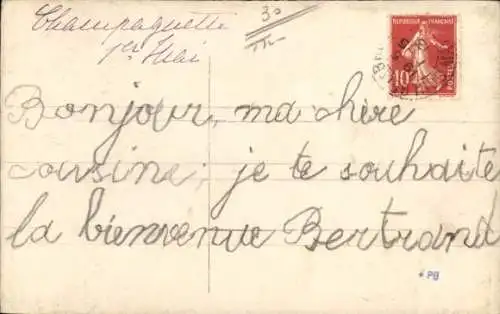 Champagnette
1er Mai
30
REPUBLIQUE FRANÇAISE
10
POSTES
Bonjour, ma chère
cousine, je te souhaite
la bienvenue Bertrand
PB